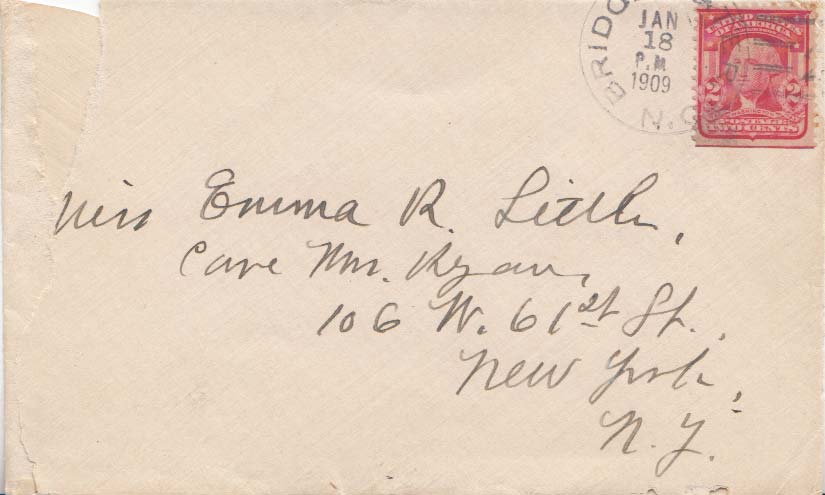 BRIDG
JAN
18
P.M.
1909
N.C.
UNITED STATES
OF AMERICA
2 2
POSTAGE
TWO CENTS
Miss Emma R. Little,
Care Mrs. Ryan,
106 W. 61st St.,
New York,
N.Y.